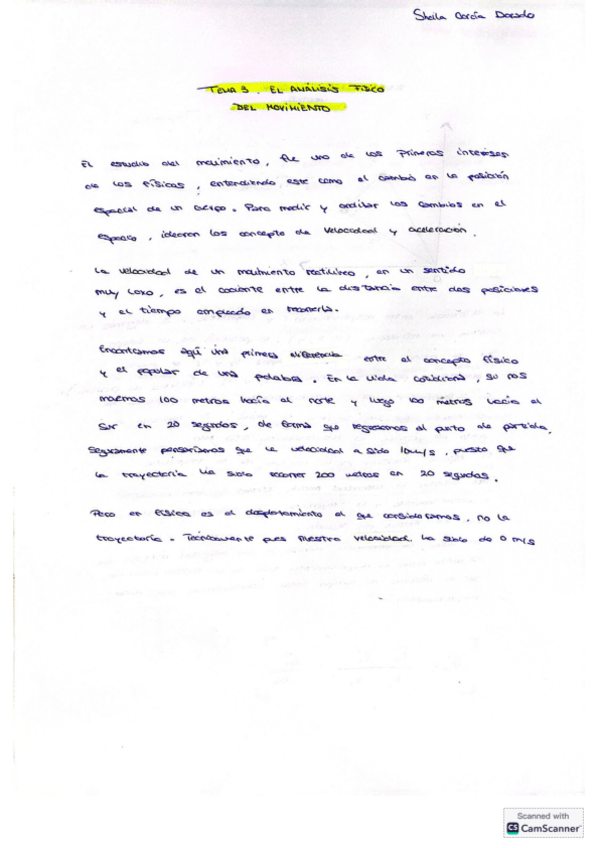 Sheila García Dorado
TEMA 3. EL ANÁLISIS FISCO
DEL MOVIMIENTO
El estudio del movimiento, fue uno de los primeros intereses
de los físicos, entendiendo este como el cambio en la posición
espacial de un cuerpo. Para medir y analizar los cambios en el
espacio, idearon los concepto de velocidad y aceleración.
La velocidad de un movimiento rectilíneo, en un sentido
muy laxo, es el cociente entre la distancia entre dos posiciones
y el tiempo empleado en recorrerla.
Encontramos aquí una primera diferencia entre el concepto físico
y el popular de una palabra. En la vida cotidiana, si nos
movemos 100 metros hacia el norte y luego 100 metros hacia el
sur en 20 segundos, de forma que regresamos al punto de partida,
seguramente pensaríamos que la velocidad a sido 10m/s, puesto que
la trayectoria ha sido recorrer 200 metros en 20 segundos.
Pero en física es el desplazamiento el que consideramos, no la
trayectoria. Técnicamente pues nuestra velocidad ha sido de 0 m/s
Scanned with
CS CamScanner